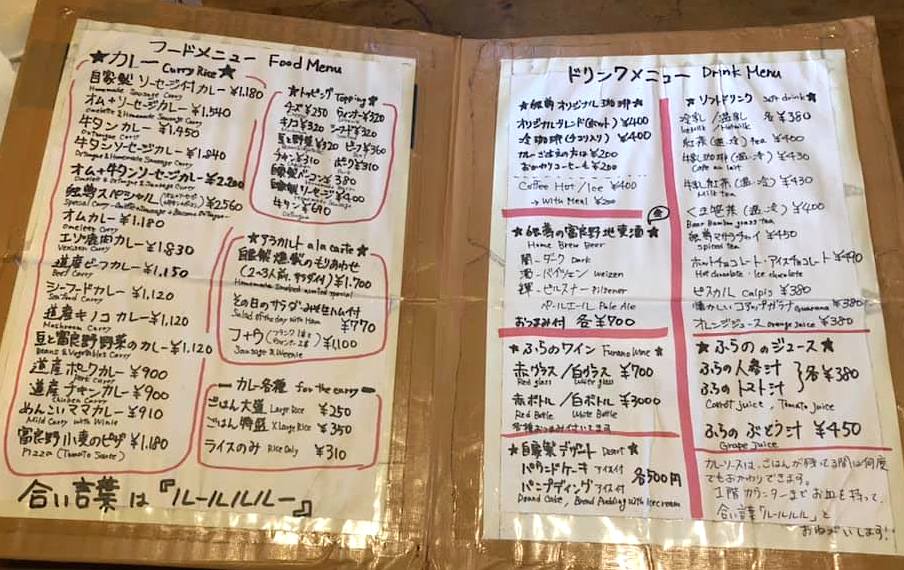 フードメニュー Food Menu
★カレー Curry Rice★
自家製 ソーセージ付カレー ¥1,180
Homemade Sausage Curry
オム+ソーセージカレー ¥1,540
Omelette & Homemade Sausage Curry
牛タンカレー ¥1,450
OxTongue Curry
牛タンソーセージカレー ¥1,840
OxTongue & Homemade Sausage Curry
オム+牛タンソーセージカレー ¥2,200
Omelette & OxTongue & Sausage Curry
スペシャル ¥2560
オムカレー ¥1,180
Omelette Curry
エゾ鹿肉カレー ¥1,830
Venison Curry
道産ビーフカレー ¥1,150
Beef Curry
シーフードカレー ¥1,120
Seafood Curry
道産キノコカレー ¥1,120
Mushroom Curry
豆と富良野野菜のカレー ¥1,120
Beans & Vegetables Curry
道産ポークカレー ¥900
Pork Curry
道産チキンカレー ¥900
Chicken Curry
めんこいママカレー ¥910
Mild Curry with Winie
富良野小麦のピザ ¥1,180
Pizza (Tomato Saute)
合い言葉は『ルールルルー』
★トッピング Topping★
チーズ ¥250 ウィンナー ¥320
キノコ ¥320 シーフード ¥320
豆と野菜 ¥320 ビーフ ¥360
チキン ¥310 ポーク ¥310
自家製ベーコン ¥380
自家製ソーセージ ¥400
牛タン ¥690
OxTongue
★アラカルト a la carte★
自家製燻製のもりあわせ
(2~3人前、サラダ付) ¥1,700
Homemade Smoked assorted special
その日のサラダ・みせはム付
¥770
Salad of the day with Ham
¥1,100
Sausage & Weenie
カレー各種 for the curry
ごはん大盛 Large Rice ¥250
ごはん特盛 X Large Rice ¥350
ライスのみ Rice Only ¥310
ドリンクメニュー Drink Menu
★唯我オリジナル珈琲★
オリジナルブレンド(ホット) ¥400
¥400
カレーご注文の方は ¥200
おかわりコーヒーも ¥200
Coffee Hot/Ice ¥400
→ With Meal ¥200
★唯我の富良野地麦酒★
Home Brew Beer
闇-ダーク Dark
ヴァイツェン Weizen
ピルスナー Pilsener
ペールエール Pale Ale
おつまみ付 各¥700
★ふらのワイン Furano Wine★
赤グラス/白グラス ¥700
Red glass White glass
赤ボトル/白ボトル ¥3000
Red Bottle White Bottle
各種おつまみ付いてます
★自家製デザート Desert★
パウンドケーキ アイス付
パンプディング アイス付
各500円
Pound Cake, Bread Pudding with Icecream
★ソフトドリンク Soft drink★
冷乳/温乳 各¥380
Icemilk/Hotmilk
紅茶(温・冷) tea ¥400
牛乳珈琲(温・冷) ¥430
Cafe au lait
牛乳紅茶(温・冷) ¥430
Milk tea
くま笹茶(温・冷) ¥400
Bear Bamboo grass Tea
唯我マサラチャイ ¥450
spiced tea
ホットチョコレート・アイスチョコレート ¥490
Hot chocolate・Ice chocolate
ピスカル Calpis ¥380
懐かしい コアップガラナ Guarana ¥380
オレンジジュース orange juice ¥380
★ふらののジュース★
ふらの人参汁
ふらのトマト汁
各¥380
Carrot juice, Tomato juice
ふらのぶどう汁 ¥450
Grape Juice
カレーソースは、ごはんが残ってる間は何度
でもおかわりできます。
1階カウンターまでお皿を持って、
合い言葉「ルールルル」と
おねがいします!